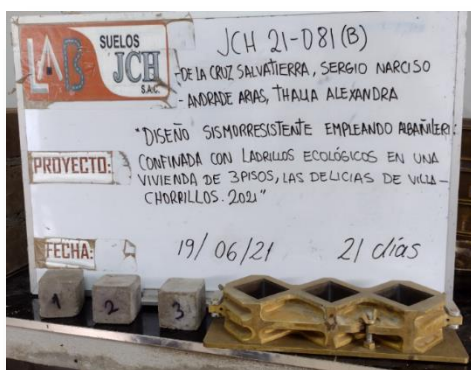 LAB
SUELOS
JCH
S.A.C.
JCH 21-081(B)
-DE LA CRUZ SALVATIERRA, SERGIO NARCISO
-ANDRADE ARIAS, THALIA ALEXANDRA
PROYECTO:
"DISEÑO SISMORRESISTENTE EMPLEANDO ALBAÑILERÍA
CONFINADA CON LADRILLOS ECOLÓGICOS EN UNA
VIVIENDA DE 3PISOS, LAS DELICIAS DE VILLA-
CHORRILLOS. 2021"
FECHA:
19/06/21
21 días
1
2
3